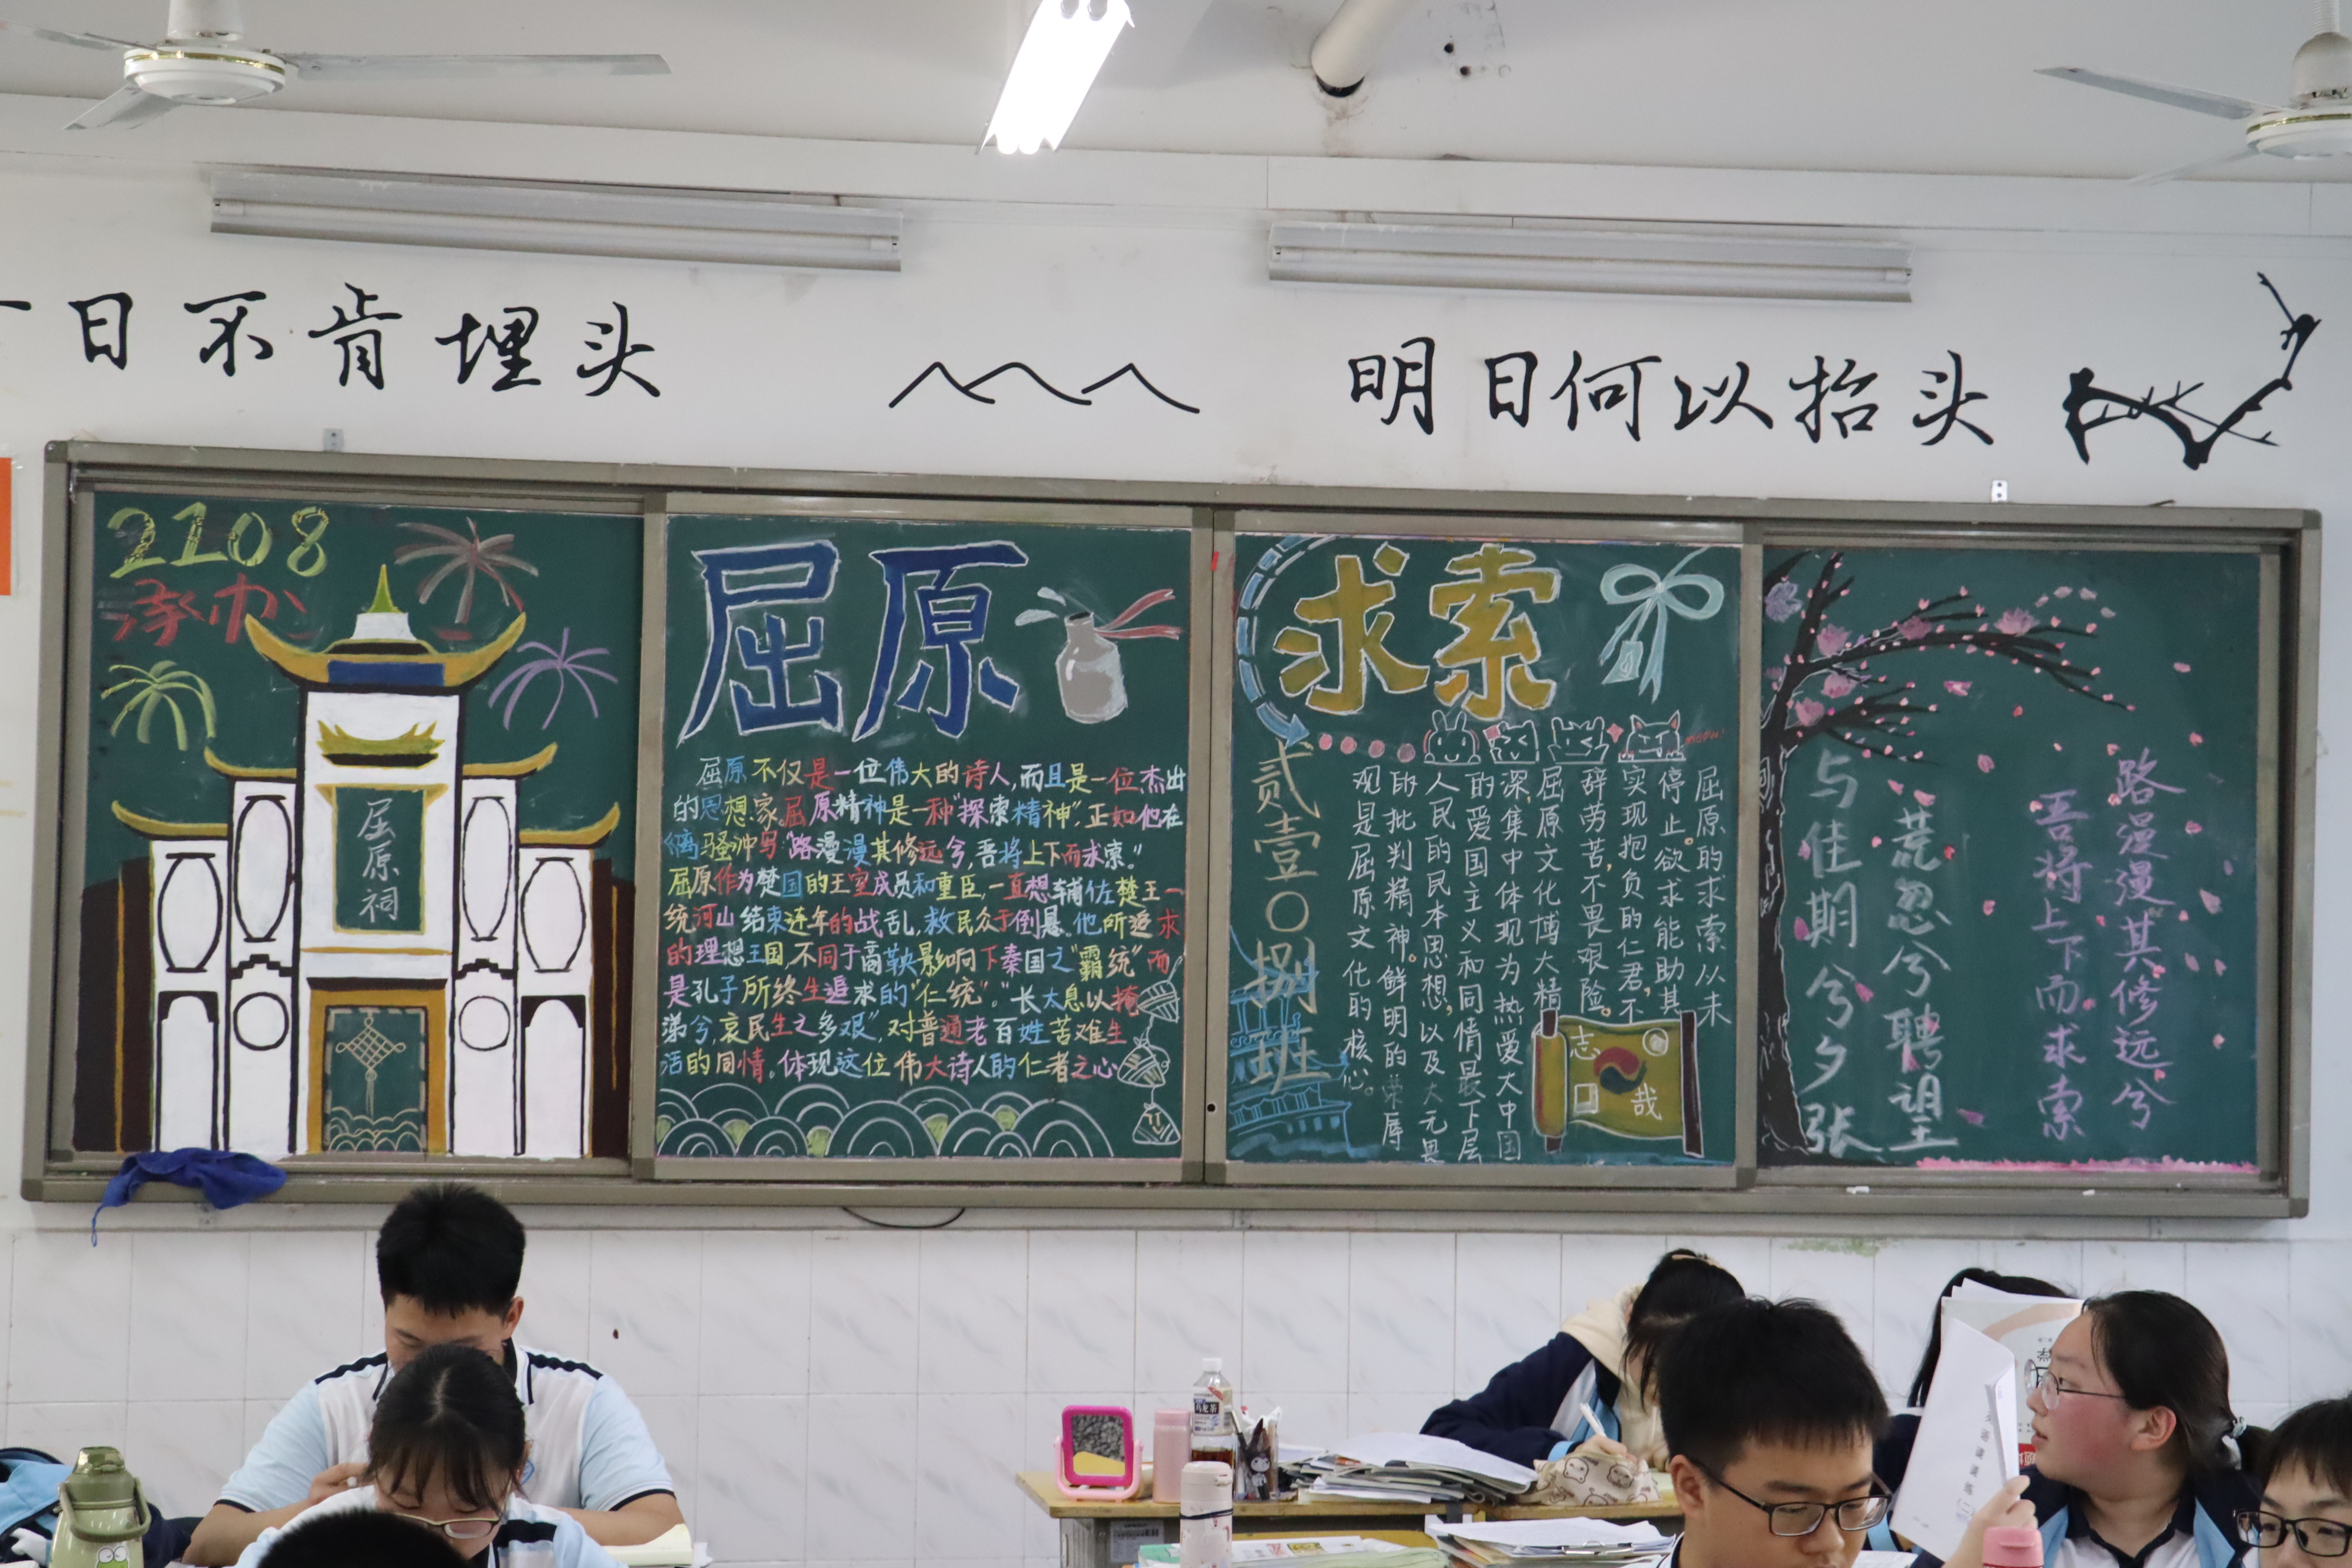 日不肯埋头
明日何以抬头
2108
承办
屈原祠
屈原
屈原不仅是一位伟大的诗人,而且是一位杰出
的思想家.屈原精神是一种"探索精神",正如他在
《离骚》中写"路漫漫其修远兮,吾将上下而求索."
屈原作为楚国的王室成员和重臣,一直想辅佐楚王一
统河山结束连年的战乱,救民众于倒悬.他所追求
的理想王国,不同于商鞅影响下秦国之"霸统"而
是孔子所终生追求的"仁统"."长太息以掩
涕兮,哀民生之多艰",对普通老百姓苦难生
活的同情。体现这位伟大诗人的仁者之心
求索
meow!
贰壹〇捌班
屈原的求索从未
停止。欲求能助其
实现抱负的仁君,不
辞劳苦,不畏艰险。
屈原文化博大精
深,集中体现为热爱大中国
的爱国主义和同情最下层
人民的民本思想,以及大无畏
的批判精神。鲜明的荣辱
观是屈原文化的核心。
志
哉
路漫漫其修远兮
吾将上下而求索
荒忽兮聘望
与佳期兮夕张